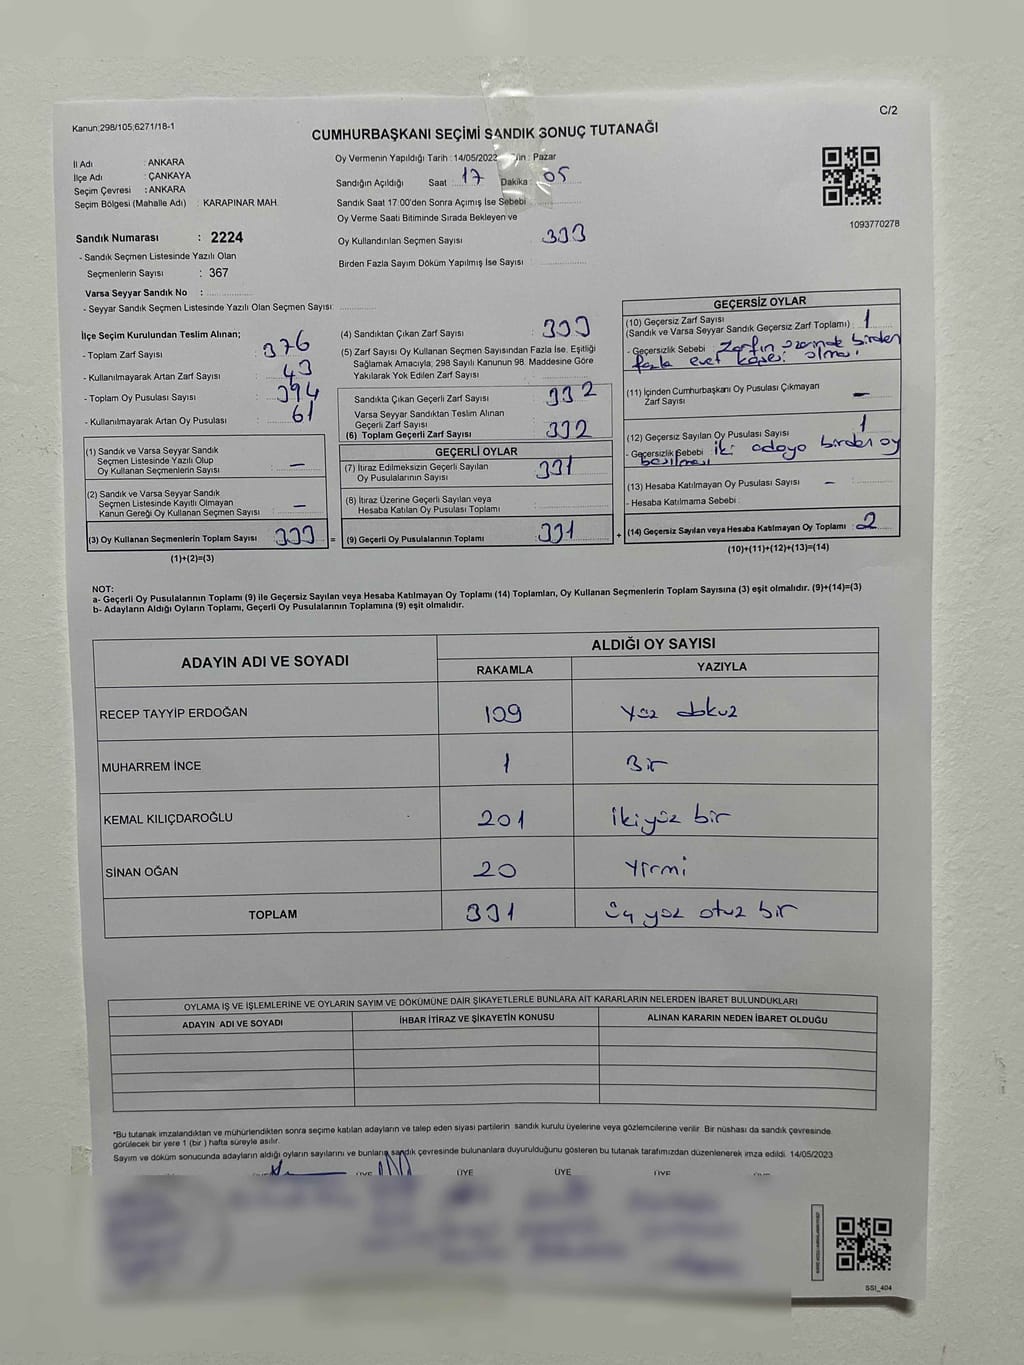 C/2
Kanun:298/105;6271/18-1
CUMHURBAŞKANI SEÇİMİ SANDIK SONUÇ TUTANAĞI
İl Adı : ANKARA
İlçe Adı : ÇANKAYA
Seçim Çevresi : ANKARA
Seçim Bölgesi (Mahalle Adı) : KARAPINAR MAH.
Oy Vermenin Yapıldığı Tarih : 14/05/2023 Pazar
Sandığın Açıldığı Saat 17 Dakika : 05
Sandık Saat 17:00'den Sonra Açımış İse Sebebi
Oy Verme Saati Bitiminde Sırada Bekleyen ve
Oy Kullandırılan Seçmen Sayısı 333
Birden Fazla Sayım Döküm Yapılmış İse Sayısı
1093770278
Sandık Numarası : 2224
- Sandık Seçmen Listesinde Yazılı Olan
Seçmenlerin Sayısı : 367
Varsa Seyyar Sandık No :
- Seyyar Sandık Seçmen Listesinde Yazılı Olan Seçmen Sayısı:
İlçe Seçim Kurulundan Teslim Alınan;
- Toplam Zarf Sayısı : 376
- Kullanılmayarak Artan Zarf Sayısı : 43
- Toplam Oy Pusulası Sayısı : 394
- Kullanılmayarak Artan Oy Pusulası : 61
(1) Sandık ve Varsa Seyyar Sandık
Seçmen Listesinde Yazılı Olup
Oy Kullanan Seçmenlerin Sayısı : —
(2) Sandık ve Varsa Seyyar Sandık
Seçmen Listesinde Kayıtlı Olmayan
Kanun Gereği Oy Kullanan Seçmen Sayısı : —
(3) Oy Kullanan Seçmenlerin Toplam Sayısı : 333
(1)+(2)=(3)
(4) Sandıktan Çıkan Zarf Sayısı : 333
(5) Zarf Sayısı Oy Kullanan Seçmen Sayısından Fazla İse, Eşitliği
Sağlamak Amacıyla; 298 Sayılı Kanunun 98. Maddesine Göre
Yakılarak Yok Edilen Zarf Sayısı
Sandıkta Çıkan Geçerli Zarf Sayısı : 332
Varsa Seyyar Sandıktan Teslim Alınan
Geçerli Zarf Sayısı
(6) Toplam Geçerli Zarf Sayısı : 332
GEÇERLİ OYLAR
(7) İtiraz Edilmeksizin Geçerli Sayılan
Oy Pusulalarının Sayısı : 331
(8) İtiraz Üzerine Geçerli Sayılan veya
Hesaba Katılan Oy Pusulası Toplamı
= (9) Geçerli Oy Pusulalarının Toplamı : 331
GEÇERSİZ OYLAR
(10) Geçersiz Zarf Sayısı
(Sandık ve Varsa Seyyar Sandık Geçersiz Zarf Toplamı) : 1
- Geçersizlik Sebebi : Zarfın üzerinde birden
fazla evet kaşesi olması
(11) İçinden Cumhurbaşkanı Oy Pusulası Çıkmayan
Zarf Sayısı —
(12) Geçersiz Sayılan Oy Pusulası Sayısı : 1
- Geçersizlik Sebebi : iki adaya birden oy
basılması
(13) Hesaba Katılmayan Oy Pusulası Sayısı —
- Hesaba Katılmama Sebebi :
+ (14) Geçersiz Sayılan veya Hesaba Katılmayan Oy Toplamı : 2
(10)+(11)+(12)+(13)=(14)
NOT:
a- Geçerli Oy Pusulalarının Toplamı (9) ile Geçersiz Sayılan veya Hesaba Katılmayan Oy Toplamı (14) Toplamları, Oy Kullanan Seçmenlerin Toplam Sayısına (3) eşit olmalıdır. (9)+(14)=(3)
b- Adayların Aldığı Oyların Toplamı, Geçerli Oy Pusulalarının Toplamına (9) eşit olmalıdır.
ADAYIN ADI VE SOYADI ALDIĞI OY SAYISI
RAKAMLA YAZIYLA
RECEP TAYYİP ERDOĞAN 109 Yüz dokuz
MUHARREM İNCE 1 Bir
KEMAL KILIÇDAROĞLU 201 İkiyüz bir
SİNAN OĞAN 20 Yirmi
TOPLAM 331 üç yüz otuz bir
OYLAMA İŞ VE İŞLEMLERİNE VE OYLARIN SAYIM VE DÖKÜMÜNE DAİR ŞİKAYETLERLE BUNLARA AİT KARARLARIN NELERDEN İBARET BULUNDUKLARI
ADAYIN ADI VE SOYADI İHBAR İTİRAZ VE ŞİKAYETİN KONUSU ALINAN KARARIN NEDEN İBARET OLDUĞU
*Bu tutanak imzalandıktan ve mühürlendikten sonra seçime katılan adayların ve talep eden siyasi partilerin sandık kurulu üyelerine veya gözlemcilerine verilir. Bir nüshası da sandık çevresinde
görülecek bir yere 1 (bir ) hafta süreyle asılır.
Sayım ve döküm sonucunda adayların aldığı oyların sayılarını ve bunların sandık çevresinde bulunanlara duyurulduğunu gösteren bu tutanak tarafımızdan düzenlenerek imza edildi. 14/05/2023
ÜYE ÜYE ÜYE ÜYE ÜYE
SSI_404